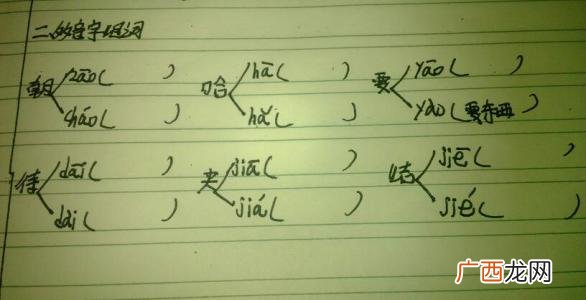 二、多音字组词
zāo( ) hā( ) yāo( )
朝 哈 要
cháo( ) hǎ( ) yào(要东西)
dāi( ) jiā( ) jiē( )
待 夹 结
dài( ) jiá( ) jié( )
广西龙网